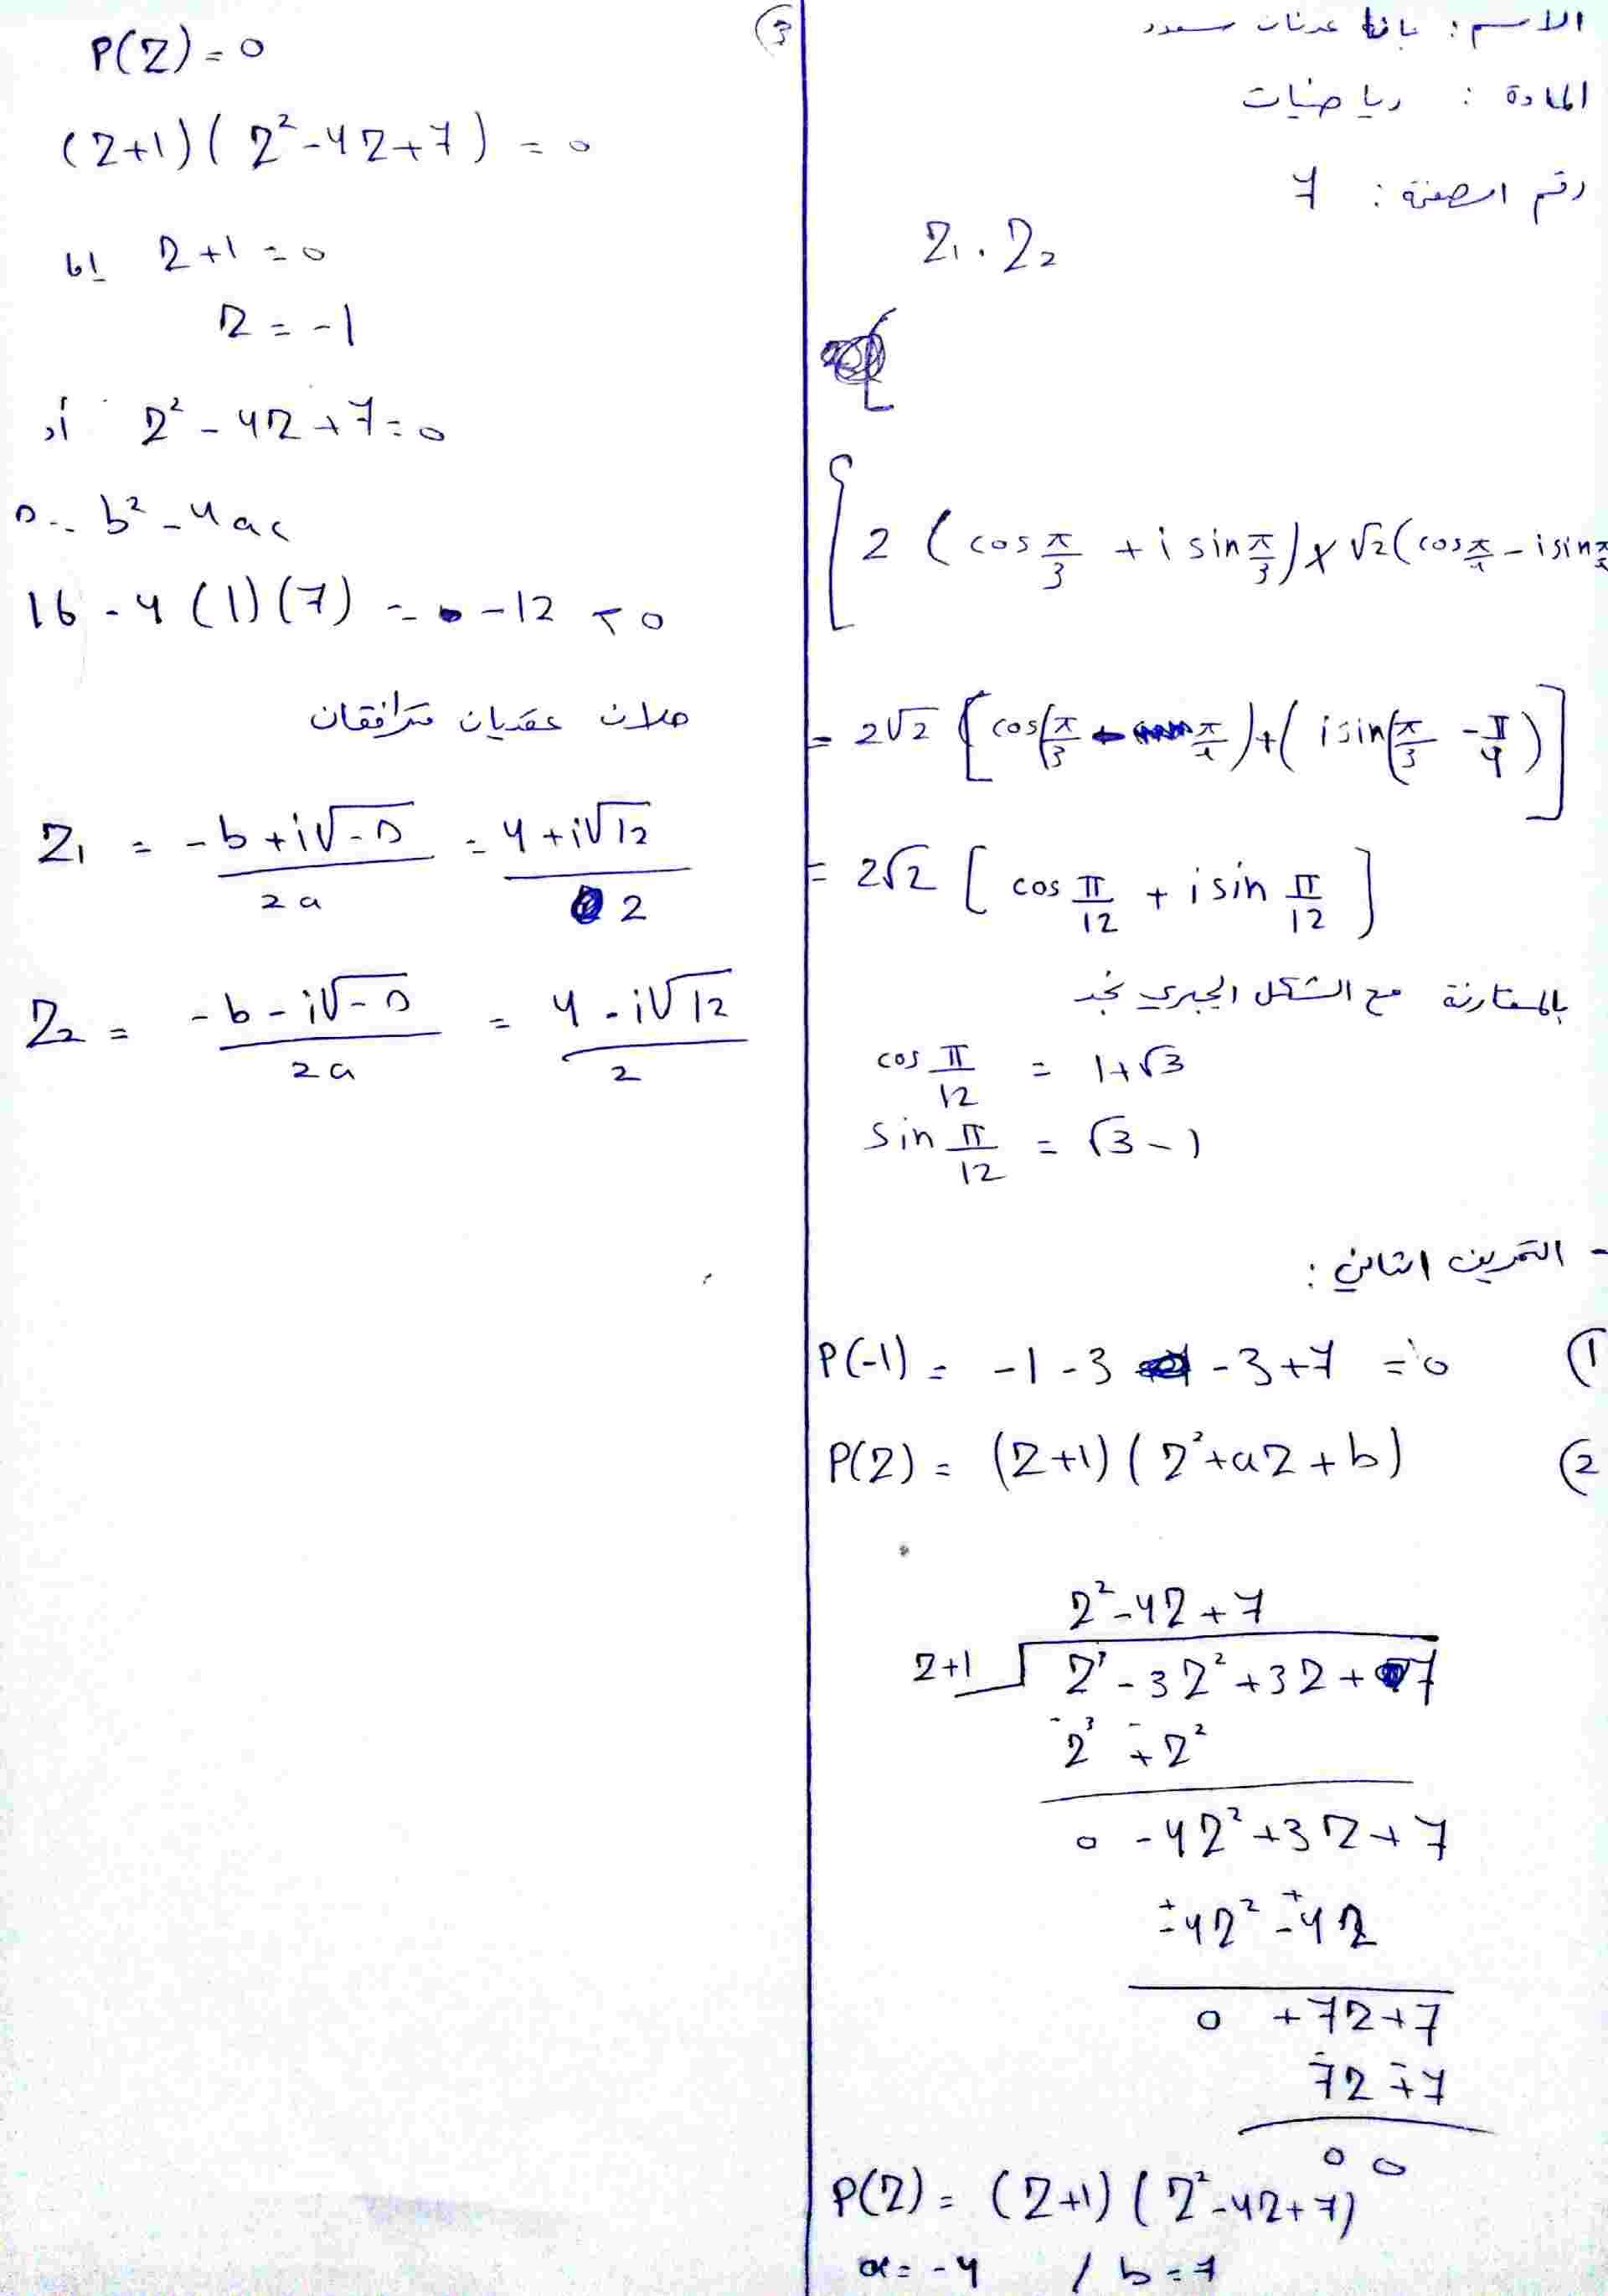 الاسم : عدنان مسعود
المادة : رياضيات
رقم الصفحة : 7
Z₁ . Z₂
[ 2 ( cos π/3 + i sin π/3 ) × √2 ( cos π/4 - i sin π/4
= 2√2 [ cos( π/3 - π/4 ) + ( i sin( π/3 - π/4 ) ]
= 2√2 [ cos π/12 + i sin π/12 ]
بالمقارنة مع الشكل الجبري نجد
cos π/12 = 1+√3
sin π/12 = √3 - 1
- التمرين الثاني :
P(-1) = -1 - 3 - 3 + 7 = 0 ①
P(Z) = (Z+1) ( Z² + aZ + b ) ②
Z² - 4Z + 7
Z+1 Z³ - 3Z² + 3Z + 7
Z³ + Z²
0 - 4Z² + 3Z + 7
- 4Z² - 4Z
0 + 7Z + 7
7Z + 7
0 0
P(Z) = (Z+1) ( Z² - 4Z + 7 )
a = -4 / b = 7
③
P(Z) = 0
(Z+1) ( Z² - 4Z + 7 ) = 0
إما Z + 1 = 0
Z = -1
أو Z² - 4Z + 7 = 0
Δ = b² - 4ac
16 - 4 (1) (7) = -12 < 0
حلان عقديان مترافقان
Z₁ = (-b + i√-Δ)/2a = (4 + i√12)/2
Z₂ = (-b - i√-Δ)/2a = (4 - i√12)/2